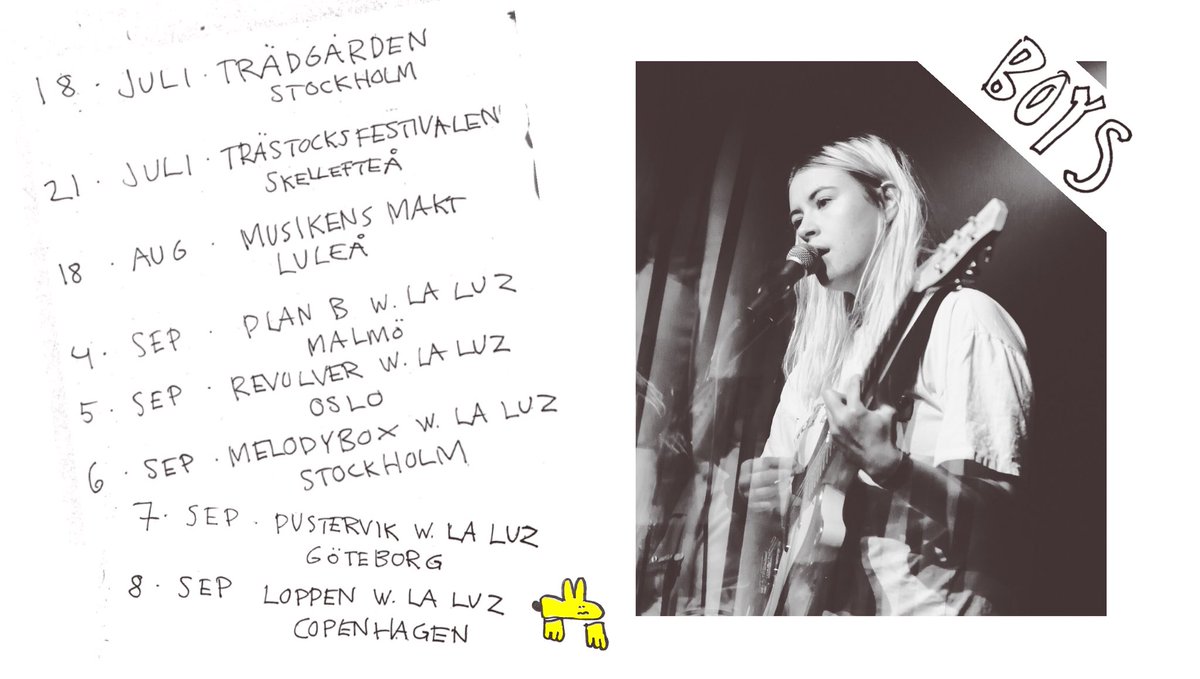 18 · JULI · TRÄDGÅRDEN
STOCKHOLM
21 · JULI · TRÄSTOCKSFESTIVALEN
SKELLEFTEÅ
18 · AUG · MUSIKENS MAKT
LULEÅ
4 · SEP · PLAN B W. LA LUZ
MALMÖ
5 · SEP · REVOLVER W. LA LUZ
OSLO
6 · SEP · MELODYBOX W. LA LUZ
STOCKHOLM
7 · SEP · PUSTERVIK W. LA LUZ
GÖTEBORG
8 · SEP LOPPEN W. LA LUZ
COPENHAGEN
BOYS